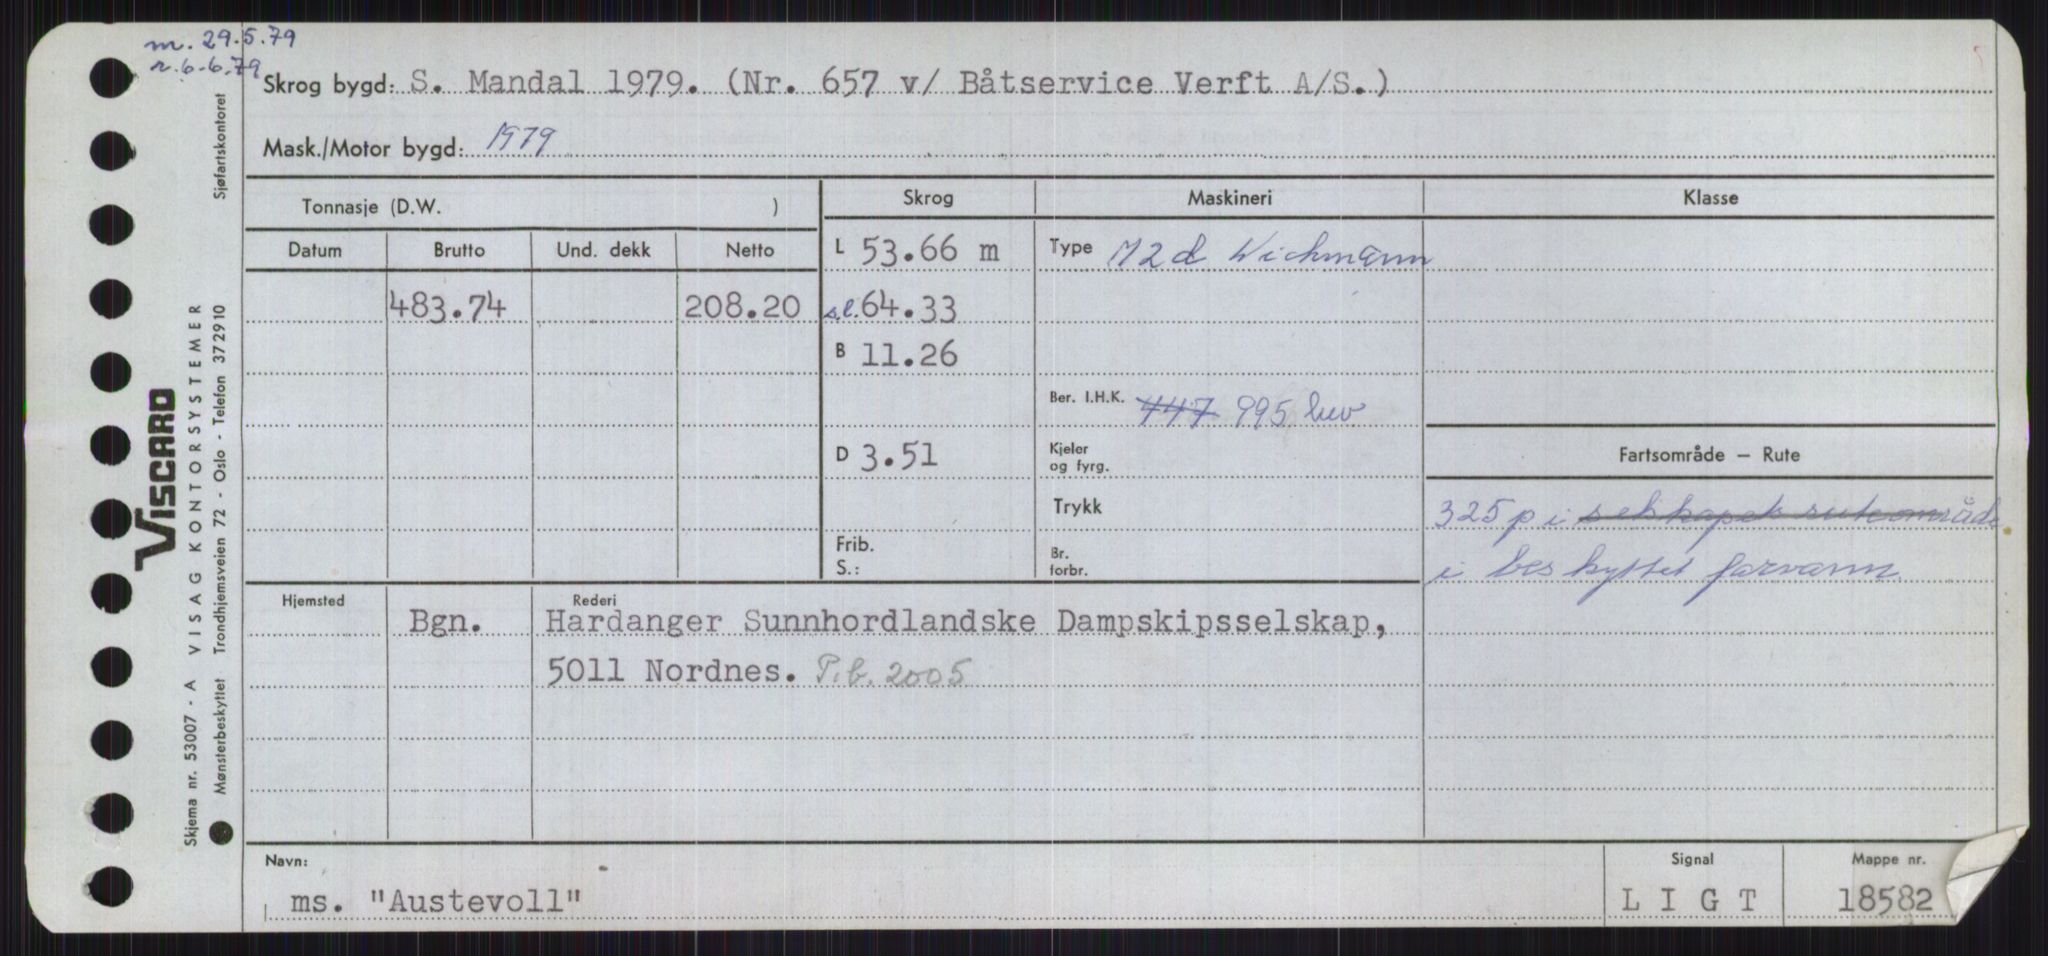 m. 29.5.79
r. 6.6.79
Skrog bygd: S. Mandal 1979. (Nr. 657 v/ Båtservice Verft A/S.)
Mask./Motor bygd: 1979
Tonnasje (D.W. )
Skrog
Maskineri
Klasse
Datum
Brutto
Und. dekk
Netto
L 53.66 m
Type M2d Wichmann
483.74
208.20
s.l. 64.33
B 11.26
Ber. I.H.K. 447 995 hk
D 3.51
Kjeler
og fyrg.
Fartsområde — Rute
Trykk
325 p i selskapets ruteområde
Frib.
S.:
Br.
forbr.
i beskyttet farvann
Hjemsted
Rederi
Bgn.
Hardanger Sunnhordlandske Dampskipsselskap,
5011 Nordnes. P.b. 2005
Navn:
ms. "Austevoll"
Signal
LIGT
Mappe nr.
18582
VISCARD
Skjema nr. 53007 - A VISAG KONTORSYSTEMER
Mønsterbeskyttet Trondhjemsveien 72 - Oslo - Telefon 372910 Sjøfartskontoret